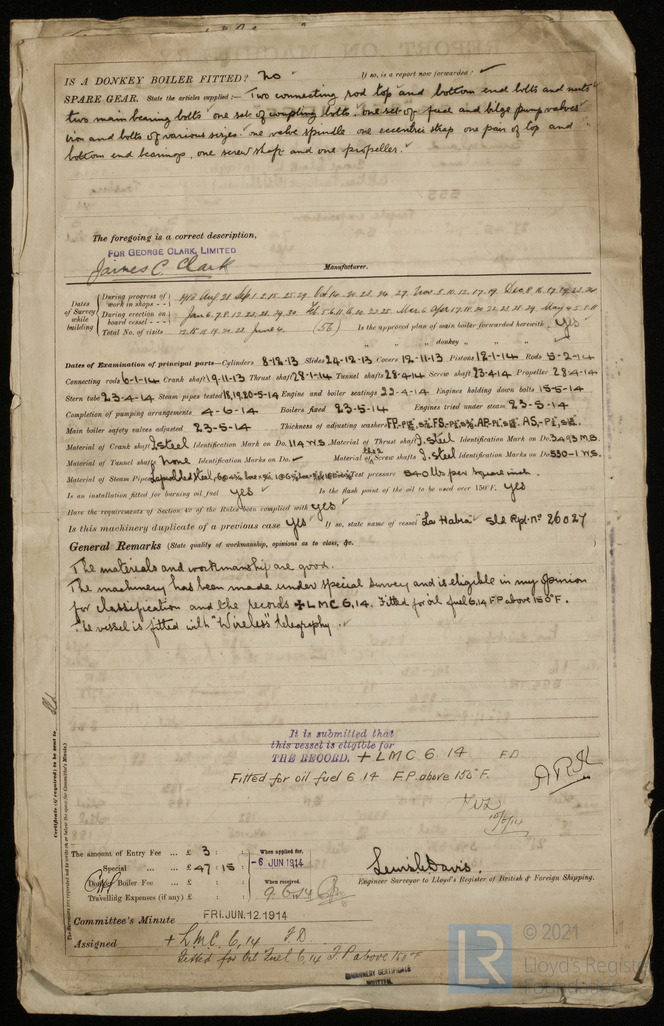 IS A DONKEY BOILER FITTED? No If so, is a report now forwarded:
SPARE GEAR. State the articles supplied:— Two connecting rod top and bottom end bolts and nuts
two main bearing bolts one set of coupling bolts, one set of feed and bilge pump valves
iron and bolts of various sizes one valve spindle one eccentric strap one pair of top and
bottom end bearings, one screw shaft and one propeller.
The foregoing is a correct description,
FOR GEORGE CLARK, LIMITED
James C. Clark Manufacturer.
Dates of Survey while building
During progress of work in shops - -
During erection on board vessel - - -
Total No. of visits (56) Is the approved plan of main boiler forwarded herewith Yes
" " " donkey " " "
Dates of Examination of principal parts—Cylinders 8-12-13 Slides 24-12-13 Covers 12-11-13 Pistons 12-1-14 Rods 5-2-14
Connecting rods 6-1-14 Crank shaft 19-11-13 Thrust shaft 28-1-14 Tunnel shafts 28-4-14 Screw shaft 23-4-14 Propeller 28-4-14
Stern tube 23-4-14 Steam pipes tested 18,19,20-5-14 Engine and boiler seatings 22-4-14 Engines holding down bolts 15-5-14
Completion of pumping arrangements 4-6-14 Boilers fixed 23-5-14 Engines tried under steam 23-5-14
Main boiler safety valves adjusted 23-5-14 Thickness of adjusting washers
Material of Crank shaft I. steel Identification Mark on Do. 114 W.S. Material of Thrust shaft I. steel Identification Mark on Do. 3493 M.B.
Material of Tunnel shafts None Identification Marks on Do. Material of Screw shafts I. steel Identification Marks on Do. 530-1 W.S.
Material of Steam Pipes Lapwelded steel, Test pressure 540 lbs per square inch.
Is an installation fitted for burning oil fuel yes Is the flash point of the oil to be used over 150°F. yes
Have the requirements of Section 49 of the Rules been complied with yes
Is this machinery duplicate of a previous case Yes If so, state name of vessel "La Habra" See Rpt. No 26027
General Remarks (State quality of workmanship, opinions as to class, &c.
The materials and workmanship are good.
The machinery has been made under special survey and is eligible in my opinion
for classification and the records + LMC 6,14. Fitted for oil fuel 6,14 F.P above 150°F.
The vessel is fitted with "Wireless" telegraphy.
It is submitted that
this vessel is eligible for
THE RECORD. + LMC 6.14 F.D.
Fitted for oil fuel 6 14 F.P. above 150°F.
Certificate (if required) to be sent to
The amount of Entry Fee ... £ 3 : :
Special ... £ 47 : 15 :
Donkey Boiler Fee ... £ : :
Travelling Expenses (if any) £ : :
When applied for,
-6 JUN 1914
When received,
9.6.14
Lewis Davis.
Engineer Surveyor to Lloyd's Register of British & Foreign Shipping.
Committee's Minute FRI. JUN. 12. 1914
Assigned + LMC. 6,14 F.D.
Fitted for Oil Fuel 6,14 F.P above 150°F
MACHINERY CERTIFICATE
WRITTEN.
© 2021
LR
Lloyd's Register
Foundation